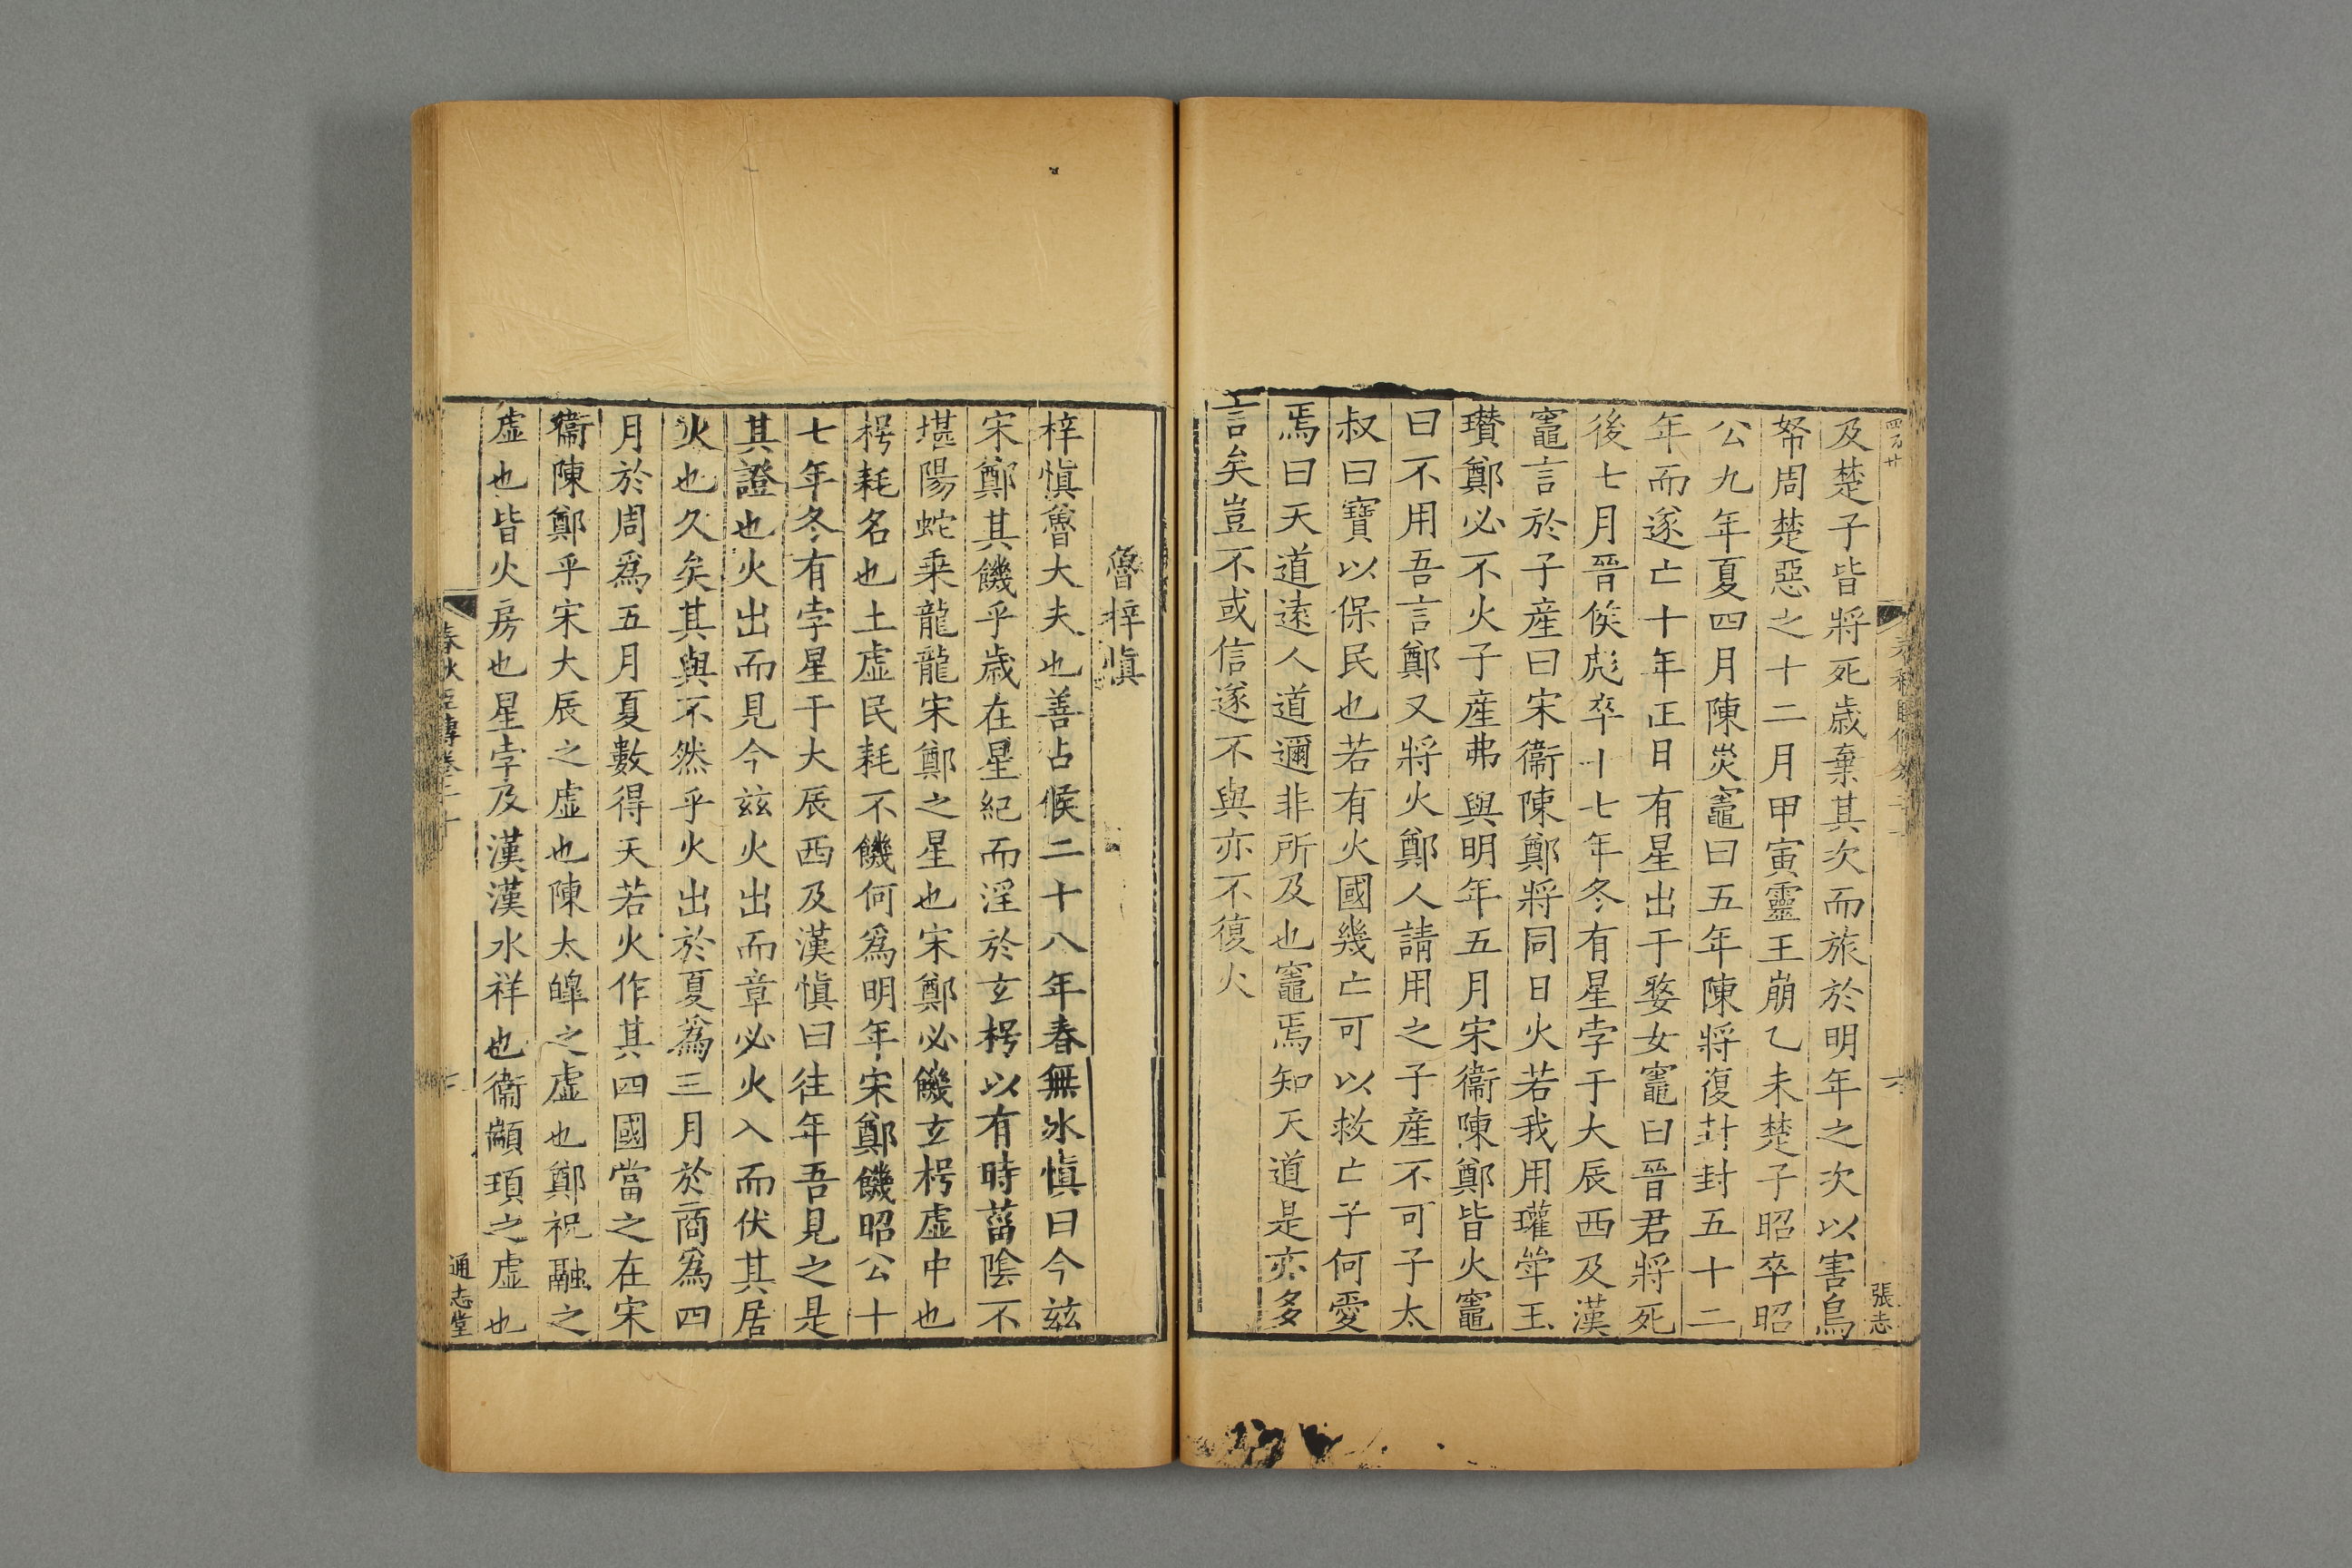 及楚子皆將死歲棄其次而旅於明年之次以害鳥
帑周楚惡之十二月甲寅靈王崩乙未楚子昭卒昭
公九年夏四月陳災竈曰五年陳將復封封五十二
年而遂亡十年正日有星出于婺女竈曰晉君將死
後七月晉侯彪卒十七年冬有星孛于大辰西及漢
竈言於子產曰宋衞陳鄭將同日火若我用瓘斝玉
瓚鄭必不火子產弗與明年五月宋衞陳鄭皆火竈
曰不用吾言鄭又將火鄭人請用之子產不可子太
叔曰寶以保民也若有火國幾亡可以救亡子何愛
焉曰天道遠人道邇非所及也竈焉知天道是亦多
言矣豈不或信遂不與亦不復火
張志
魯梓愼
梓愼魯大夫也善占候二十八年春無冰愼曰今茲
宋鄭其饑乎歲在星紀而淫於玄枵以有時菑陰不
堪陽蛇乗龍龍宋鄭之星也宋鄭必饑玄枵虛中也
枵耗名也土虛民耗不饑何爲明年宋鄭饑昭公十
七年冬有孛星于大辰西及漢愼曰徃年吾見之是
其證也火出而見今茲火出而章必火入而伏其居
火也久矣其與不然乎火出於夏爲三月於商爲四
月於周爲五月夏數得天若火作其四國當之在宋
衞陳鄭乎宋大辰之虛也陳太皥之虛也鄭祝融之
虛也皆火房也星孛及漢漢水祥也衞顓頊之虛也
春秋臣傳卷二十
通志堂